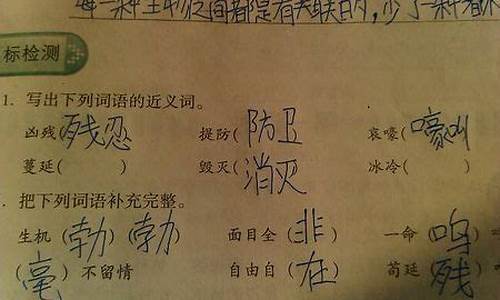 每一种生物之间都是有关联的,少了一种看
标检测
1. 写出下列词语的近义词。
凶残(残忍) 提防(防卫) 哀嚎(嚎叫)
蔓延( ) 毁灭(消灭) 冰冷( )
. 把下列词语补充完整。
生机(勃)(勃) 面目全(非) 一命(鸣
(毫)不留情 自由自(在) 苟延(残